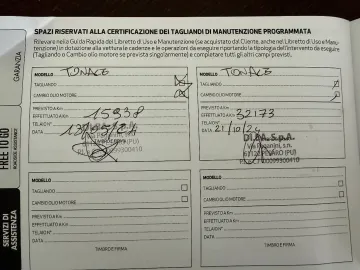 SPAZI RISERVATI ALLA CERTIFICAZIONE DEI TAGLIANDI DI MANUTENZIONE PROGRAMMATA
Rilevare nella Guida Rapida del Libretto di Uso e Manutenzione (se acquistato dal Cliente, anche nel Libretto di Uso e Manu-
tenzione) in dotazione alla vettura le cadenze e le operazioni da eseguire riportando la tipologia dell'intervento da eseguire
(Tagliando o Cambio olio motore se prevista singolarmente) e completare tutti gli altri campi previsti.
GARANZIA
FREE TO GO
SERVIZI DI
ASSISTENZA
MODELLO TONALE
TAGLIANDO
CAMBIO OLIO MOTORE
PREVISTO A Km
EFFETTUATO A Km 15938
TELAIO N°
DATA
61122 PESARO (PU)
MODELLO TONALE
TAGLIANDO
CAMBIO OLIO MOTORE
PREVISTO A Km
EFFETTUATO A Km 32173
TELAIO N°
DATA 21/10/24
DI.BA. S.p.A.
Via Paganini, sn.
61122 PESARO (PU)
MODELLO
TAGLIANDO
CAMBIO OLIO MOTORE
PREVISTO A Km
EFFETTUATO A Km
TELAIO N°
DATA
TIMBRO E FIRMA
MODELLO
TAGLIANDO
CAMBIO OLIO MOTORE
PREVISTO A Km
EFFETTUATO A Km
TELAIO N°
DATA
TIMBRO E FIRMA